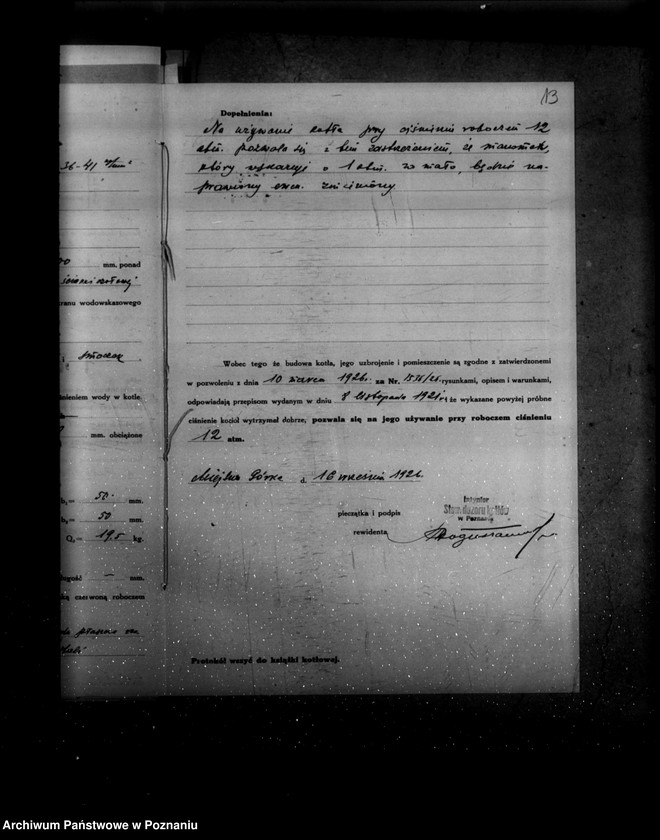 13
36-41
mm. ponad
ranu wodowskazowego
i smoczek
śnieniem wody w kotle.
mm. obciążone
b₁= 50 mm.
b₂= 50 mm.
Q= 19,5 kg.
ługość — mm.
ką czerwoną roboczem
Dopełnienia:
Na używanie kotła przy ciśnieniu roboczem 12
atm. pozwala się z tem zastrzeżeniem, że manometr,
który wskazuje o 1 atm. za mało, będzie na-
prawiony wzgl. zmieniony
Wobec tego że budowa kotła, jego uzbrojenie i pomieszczenie są zgodne z zatwierdzonemi
w pozwoleniu z dnia 10 marca 1926. za Nr. rysunkami, opisem i warunkami,
odpowiadają przepisom wydanym w dniu 8 listopada 1921 r. i że wykazane powyżej próbne
ciśnienie kocioł wytrzymał dobrze, pozwala się na jego używanie przy roboczem ciśnieniu
12 atm.
Miejska Górka d. 16 wrzesień 1926.
pieczątka i podpis
rewidenta
Inżynier
Stow. dozoru kotłów
w Poznaniu
Protokół wszyć do książki kotłowej.
Archiwum Państwowe w Poznaniu